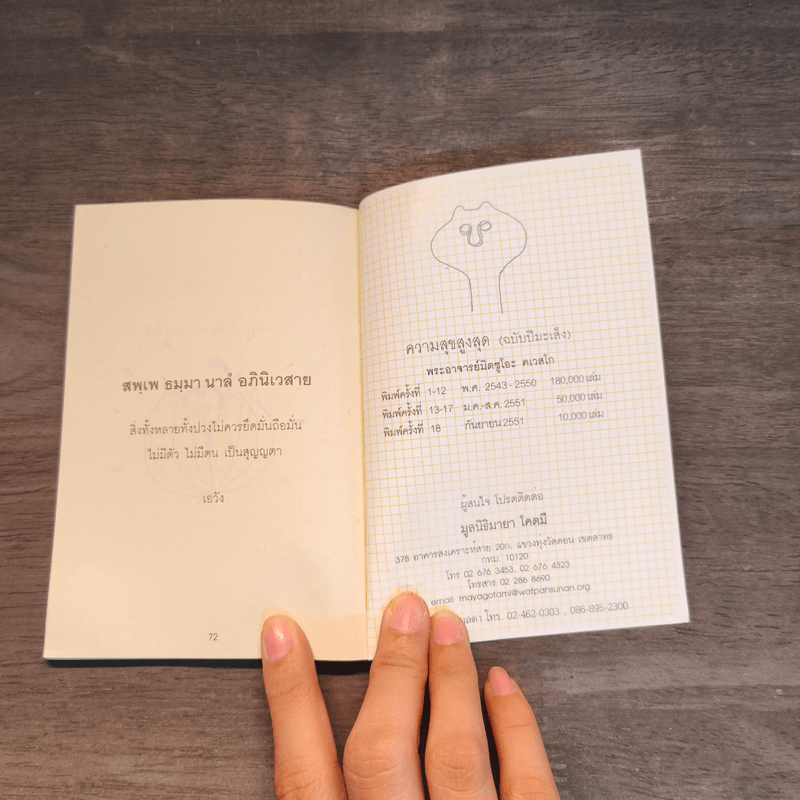 สพฺเพ ธมฺมา นาลํ อภินิเวสาย
สิ่งทั้งหลายทั้งปวงไม่ควรยึดมั่นถือมั่น
ไม่มีตัว ไม่มีตน เป็นสุญญตา
เอวัง
72
ความสุขสูงสุด (ฉบับปีมะเส็ง)
พระอาจารย์มิตซูโอะ คเวสโก
พิมพ์ครั้งที่ 1-12 พ.ศ. 2543-2550 180,000 เล่ม
พิมพ์ครั้งที่ 13-17 ม.ค.-ส.ค. 2551 50,000 เล่ม
พิมพ์ครั้งที่ 18 กันยายน 2551 10,000 เล่ม
ผู้สนใจ โปรดติดต่อ
มูลนิธิมายา โคตมี
378 อาคารสงเคราะห์สาย 20ก. แขวงทุ่งวัดดอน เขตสาทร
กทม. 10120
โทร 02 676 3453, 02 676 4323
โทรสาร 02 286 8690
email: mayagotami@watpahsunan.org
โทร. 02-462-0303 , 086-895-2300